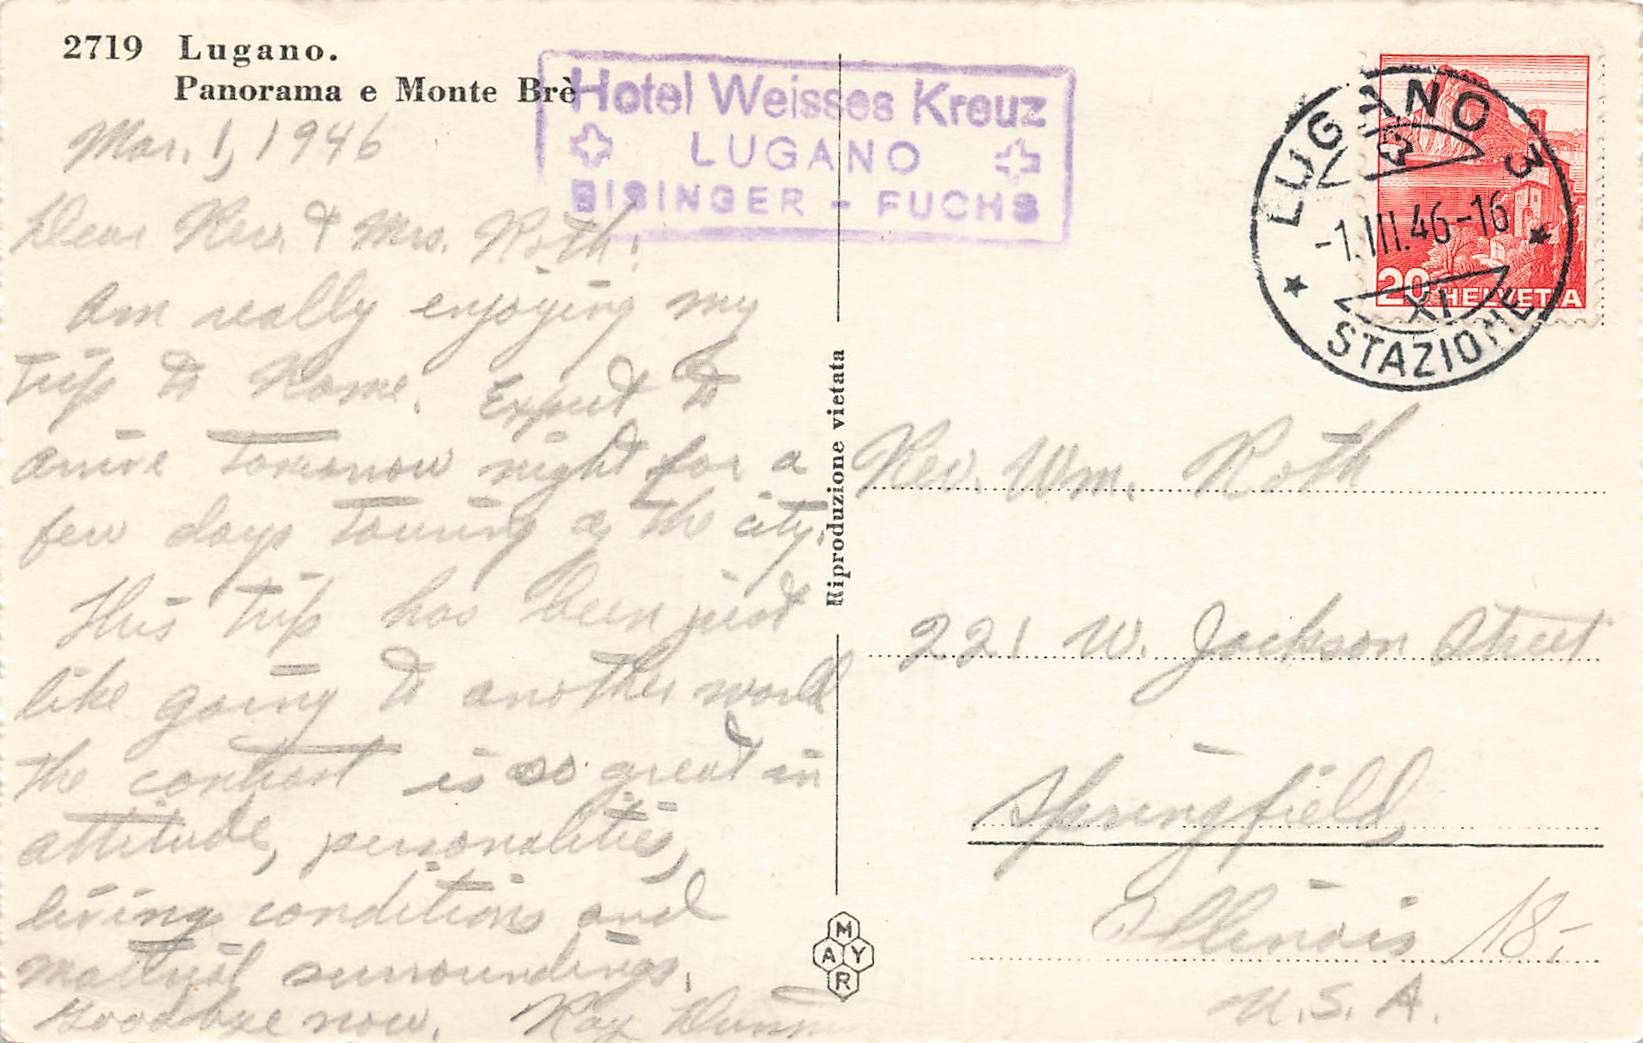 2719 Lugano.
Panorama e Monte Brè
Hotel Weisses Kreuz
LUGANO
BISINGER - FUCHS
LUGANO 3
-1.III.46-16
XI
STAZIONE
20 HELVETIA
Mar. 1, 1946
Dear Rev. & Mrs. Roth:
Am really enjoying my
trip to Rome. Expect to
arrive tomorrow night for a
few days touring of the city.
This trip has been just
like going to another world
the contrast is so great in
attitude, personalities,
living conditions and
material surroundings.
Goodbye now. Ray Dunn
Riproduzione vietata
MAYR
Rev. Wm. Roth
221 W. Jackson Street
Springfield,
Illinois 18.-
U.S.A.